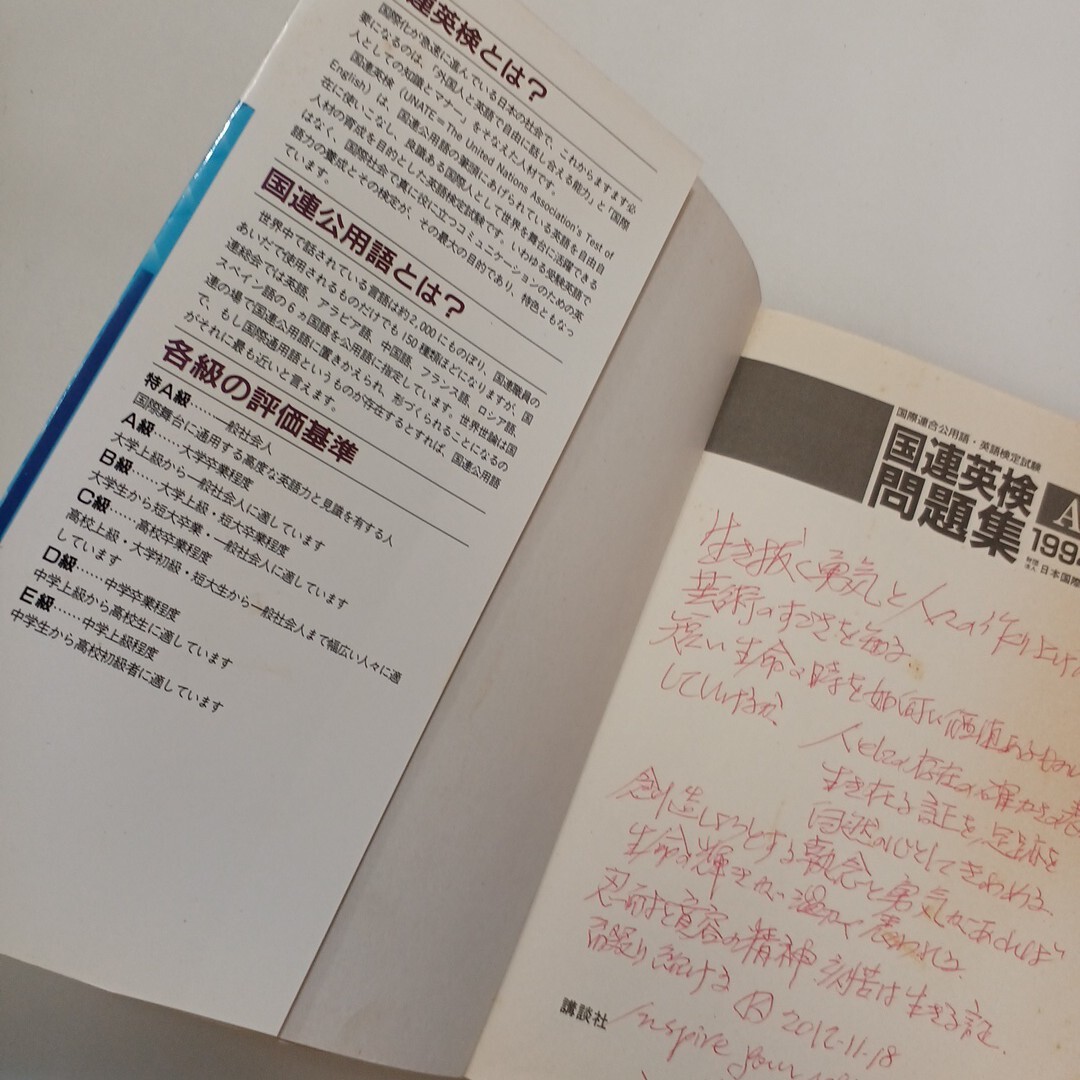 連英検とは？
国際化が急速に進んでいる日本の社会で、これからますます必
要になるのは、「外国人と英語で自由に話し合える能力」と「国際
人としての知識とマナー」をそなえた人材です。
国連英検（UNATE＝The United Nations Association's Test of
English）は、国連公用語の筆頭にあげられている英語を自由自
在に使いこなし、良識ある国際人として世界を舞台に活躍できる
人材の育成を目的とした英語検定試験です。いわゆる受験英語で
はなく、国際社会で真に役に立つコミュニケーションのための英
語力の養成とその検定が、その最大の目的であり、特色ともなっ
ています。
国連公用語とは？
世界中で話されている言語は約2,000にものぼり、国連職員の
あいだで使用されるものだけでも150種類ほどになりますが、国
連総会では英語、アラビア語、中国語、フランス語、ロシア語、
スペイン語の6ヵ国語を公用語に指定しています。世界世論は国
連の場で国連公用語に置きかえられ、形づくられることになるの
で、もし国際通用語というものが存在するとすれば、国連公用語
がそれに最も近いと言えます。
各級の評価基準
特A級……一般社会人
国際舞台に通用する高度な英語力と見識を有する人
A級……大学卒業程度
大学上級から一般社会人に適しています
B級……大学上級・短大卒業程度
大学生から短大卒業・一般社会人に適しています
C級……高校卒業程度
高校上級・大学初級・短大生から一般社会人まで幅広い人々に適
しています
D級……中学卒業程度
中学上級から高校生に適しています
E級……中学上級程度
中学生から高校初級者に適しています
国際連合公用語・英語検定試験
国連英検 A
問題集 199
財団法人 日本国際
生き抜く勇気と人々の作り上げ
芸術のすごさを知る。
短い生命の時を如何に価値あるもの
していけるか。
人としての存在の確かな
生き在る証を、足跡を
自然の心としてきわめる
創造しようとする執念と勇気があれば
生命の輝きは、温かく表われる。
忍耐と寛容の精神、刻苦は生きる証
綴り続ける 2012-11-18
Inspire your
講談社